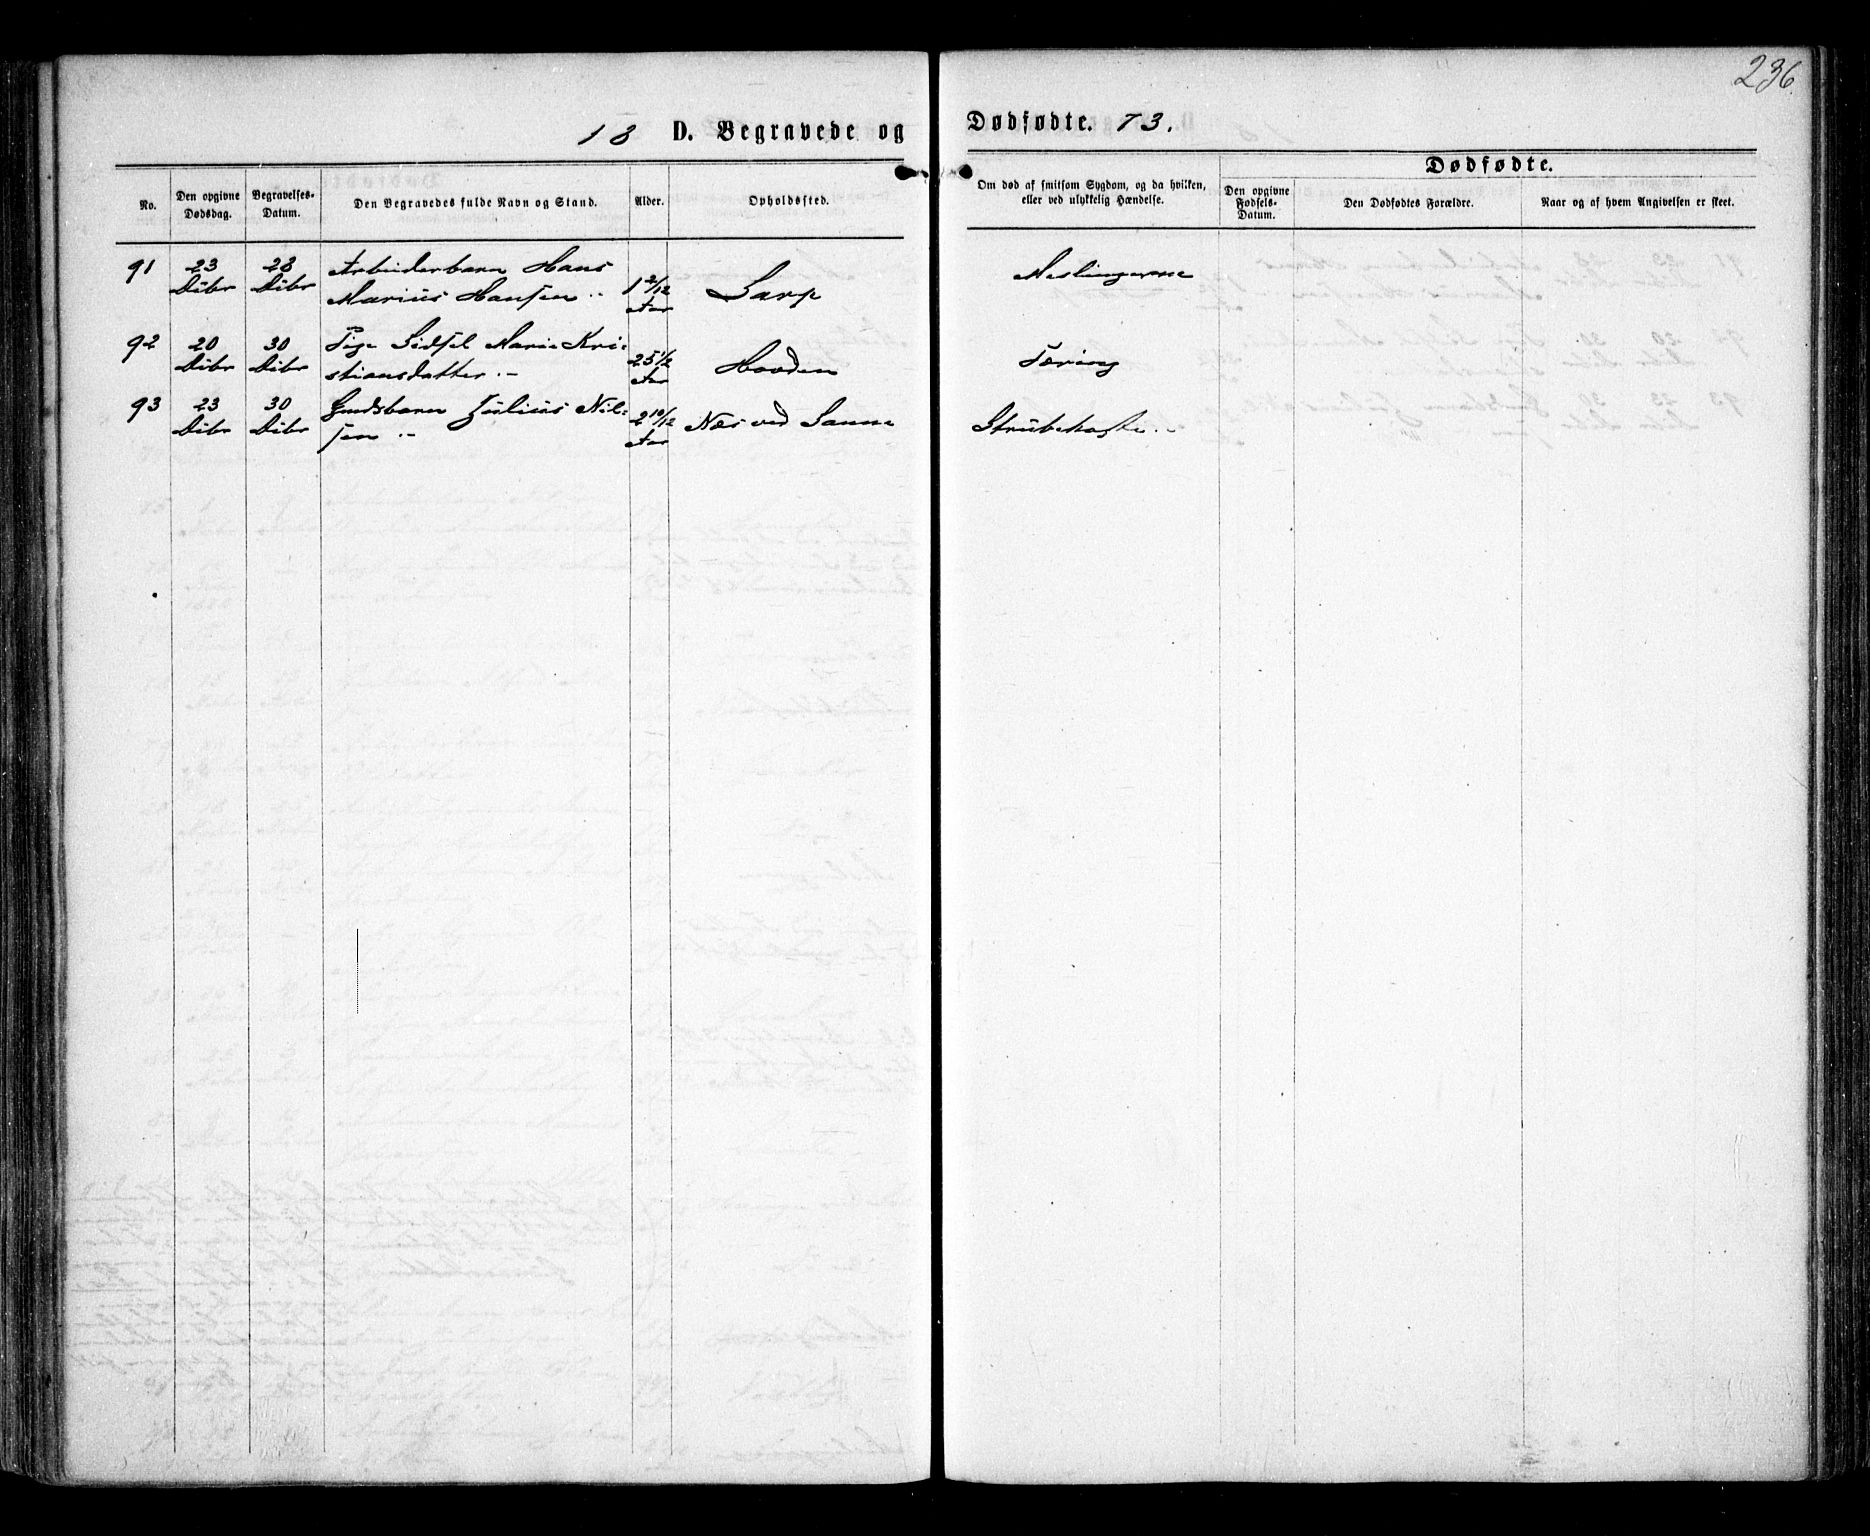 236
18 D. Begravede og Dødfødte. 73.
No. Den opgivne Dødsdag. Begravelses-Datum. Den Begravedes fulde Navn og Stand. Alder. Opholdssted. Om død af smitsom Sygdom, og da hvilken, eller ved ulykkelig Hændelse. Dødfødte.
Den opgivne Fødsels-Datum. Den Dødfødtes Forældre. Naar og af hvem Angivelsen er skeet.
91 23 28 Arbeiderbarn Hans
Dcbr Dcbr Marius Hansen .- 1 2/12 Aar Sarp Meslingerne
92 20 30 Pige Sidsel Marie Kri-
Dcbr Dcbr stiansdatter .- 25 1/2 Aar Hovden Tæring
93 23 30 Gmdsbarn Julius Nil-
Dcbr Dcbr sen .- 2 10/12 Aar Næs ved Sanne Strubehoste .-